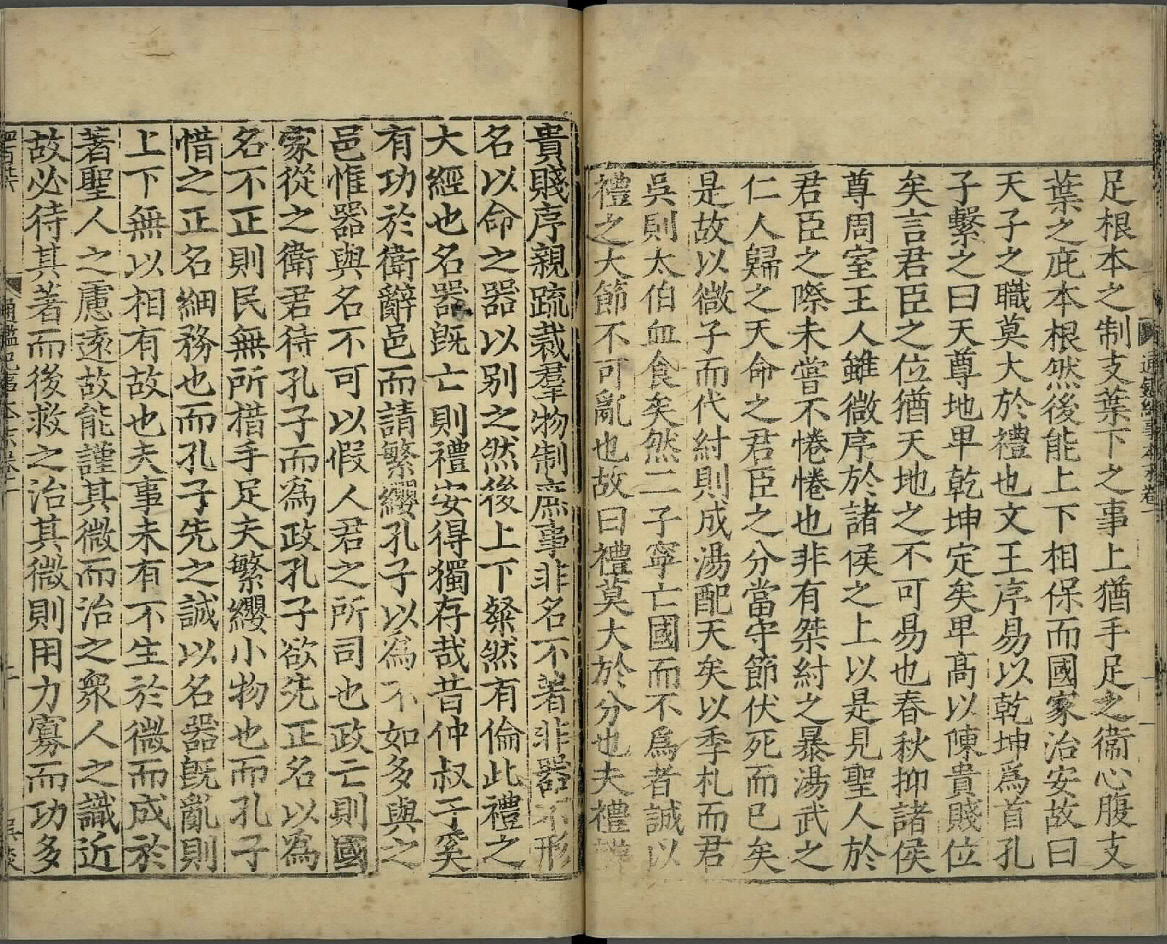 足根本之制支葉下之事上猶手足之衞心腹支
葉之庇本根然後能上下相保而國家治安故曰
天子之職莫大於禮也文王序易以乾坤爲首孔
子繫之曰天尊地卑乾坤定矣卑髙以陳貴賤位
矣言君臣之位猶天地之不可易也春秋抑諸侯
尊周室王人雖微序於諸侯之上以是見聖人於
君臣之際未嘗不惓惓也非有桀紂之暴湯武之
仁人歸之天命之君臣之分當守節伏死而已矣
是故以微子而代紂則成湯配天矣以季札而君
吳則太伯血食矣然二子寧亡國而不爲者誠以
禮之大節不可亂也故曰禮莫大於分也夫禮辨
貴賤序親疏裁羣物制庶事非名不著非器不形
名以命之器以别之然後上下粲然有倫此禮之
大經也名器旣亡則禮安得獨存哉昔仲叔于奚
有功於衛辭邑而請繁纓孔子以為不如多與之
邑惟器與名不可以假人君之所司也政亡則國
家從之衛君待孔子而爲政孔子欲先正名以為
名不正則民無所措手足夫繁纓小物也而孔子
惜之正名細務也而孔子先之誠以名器旣亂則
上下無以相有故也夫事未有不生於微而成於
著聖人之慮遠故能謹其微而治之衆人之識近
故必待其著而後救之治其微則用力寡而功多